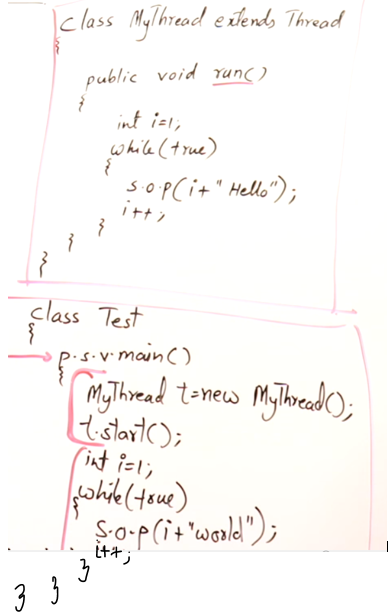 class MyThread extends Thread
{
public void run()
{
int i=1;
while(true)
{
s.o.p(i+" Hello");
i++;
}
}
}
class Test
{
p.s.v.main()
{
MyThread t=new MyThread();
t.start();
int i=1;
while(true)
{
s.o.p(i+"world");
i++;
}
}
}